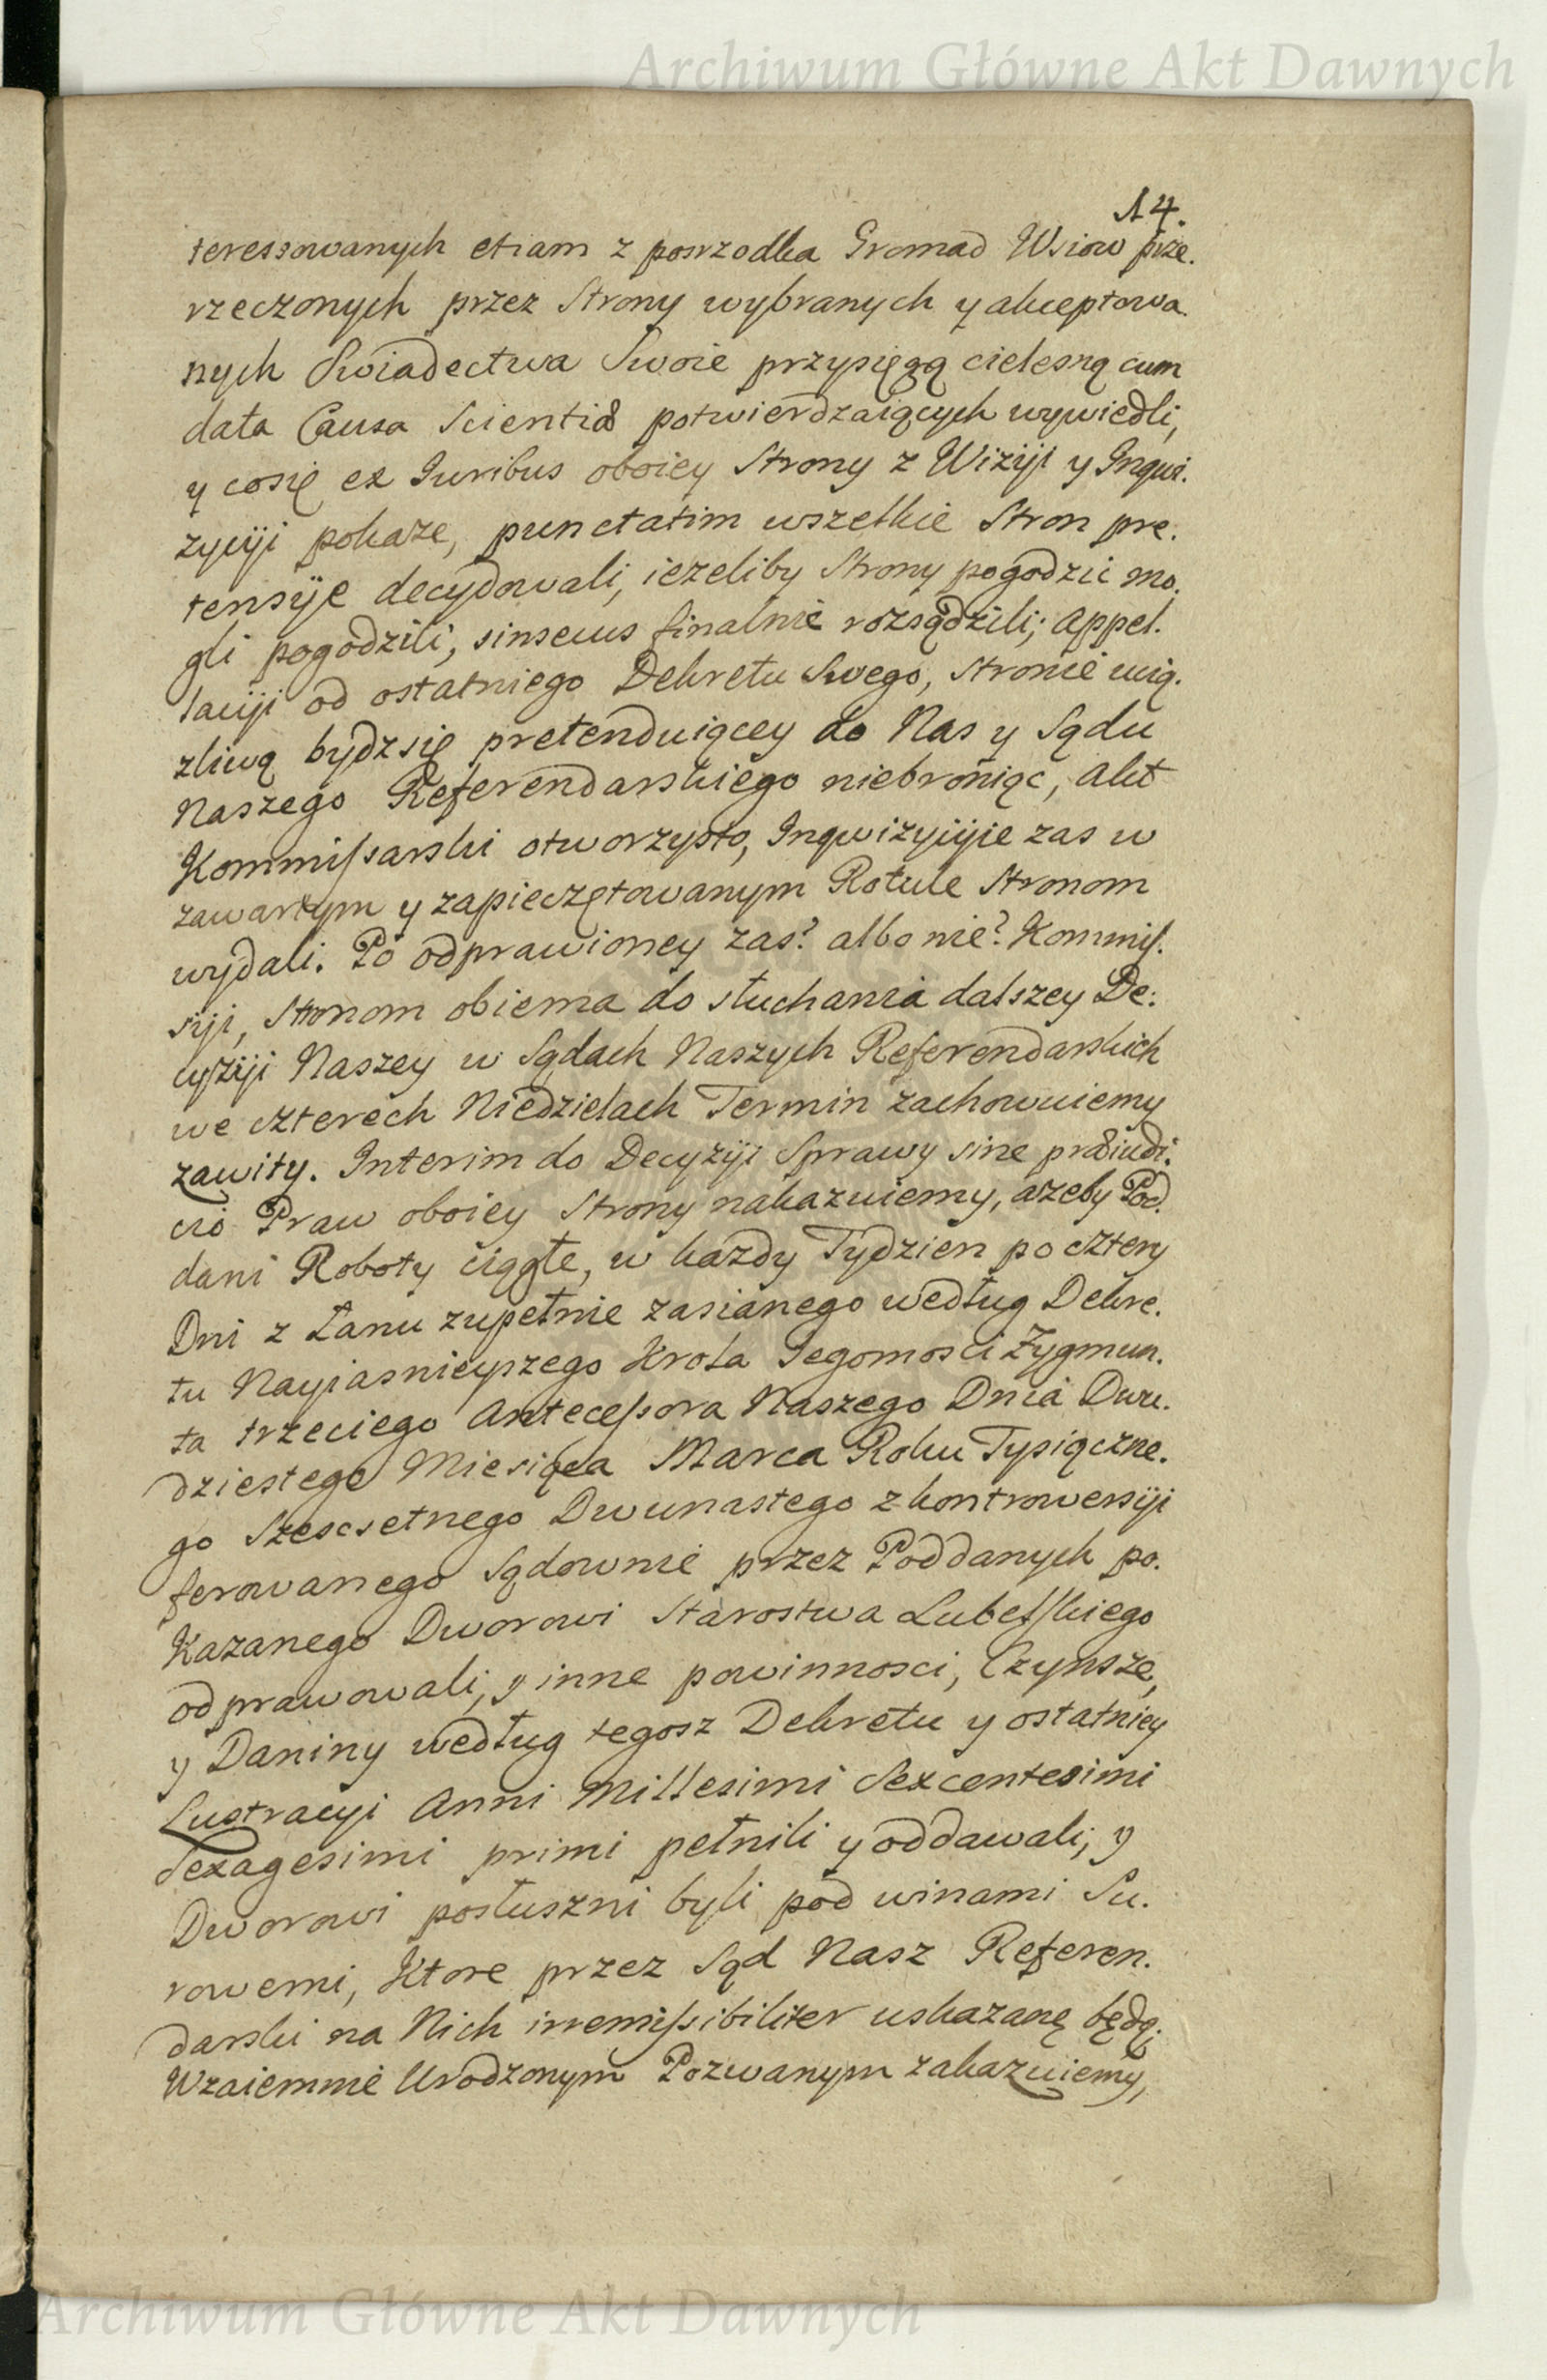 Archiwum Główne Akt Dawnych
14.
teressowanych etiam z posrzodka Gromad Wsiow prze.
rzeczonych przez Strony wybranych y akceptowa.
nych Swiadectwa Swoie przysięgą cielesną cum
data Causa Scientiæ potwierdzaiących wywiedli,
y cosię ex Iuribus oboiey Strony z Wizyi y Inqwi.
zycyi pokaze, punctatim wszelkie Stron pre.
tensye decydowali, iezeliby Strony pogodzic mo.
gli pogodzili, sinsecus finalnie rozsądzili; Appel.
lacyi od ostatniego Dekretu Swego, Stronie ucią.
zliwą bydz się pretenduiącey do Nas y Sądu
Naszego Referendarskiego niebroniąc, Akt
Kommissarski otworzysto, Inqwizycyie zas w
zawartym y zapieczętowanym Rotule Stronom
wydali. Po odprawioney zas? albo nie? Kommis.
syi, Stronom obiema do słuchania dalszey De:
cyzyi Naszey w Sądach Naszych Referendarskich
we czterech Niedzielach Termin zachowuiemy
zawity. Interim do Decyzyi Sprawy sine præiudi.
cio Praw oboiey Strony nakazuiemy, azeby Pod.
dani Roboty ciągłe, w kazdy Tydzien po cztery
Dni z Łanu zupełnie zasianego według Dekre.
tu Nayiasnieyszego Krola Jegomosci Zygmun.
ta trzeciego Antecessora Naszego Dnia Dwu.
dziestego Miesiąca Marca Roku Tysiączne.
go Szescsetnego Dwunastego z kontrowersyi
ferowanego Sądownie przez Poddanych po.
kazanego Dworowi Starostwa Lubelskiego
odprawowali, y inne powinnosci, Czynsze,
y Daniny według tegosz Dekretu y ostatniey
Lustracyi Anni Millesimi Sexcentesimi
Sexagesimi primi pełnili y oddawali, y
Dworowi posłuszni byli pod winami Su.
rowemi, Ktore przez Sąd Nasz Referen.
darski na Nich irremissibiliter uskazane będą.
Wzaiemnie Urodzonym Pozwanym zakazuiemy,
Archiwum Główne Akt Dawnych